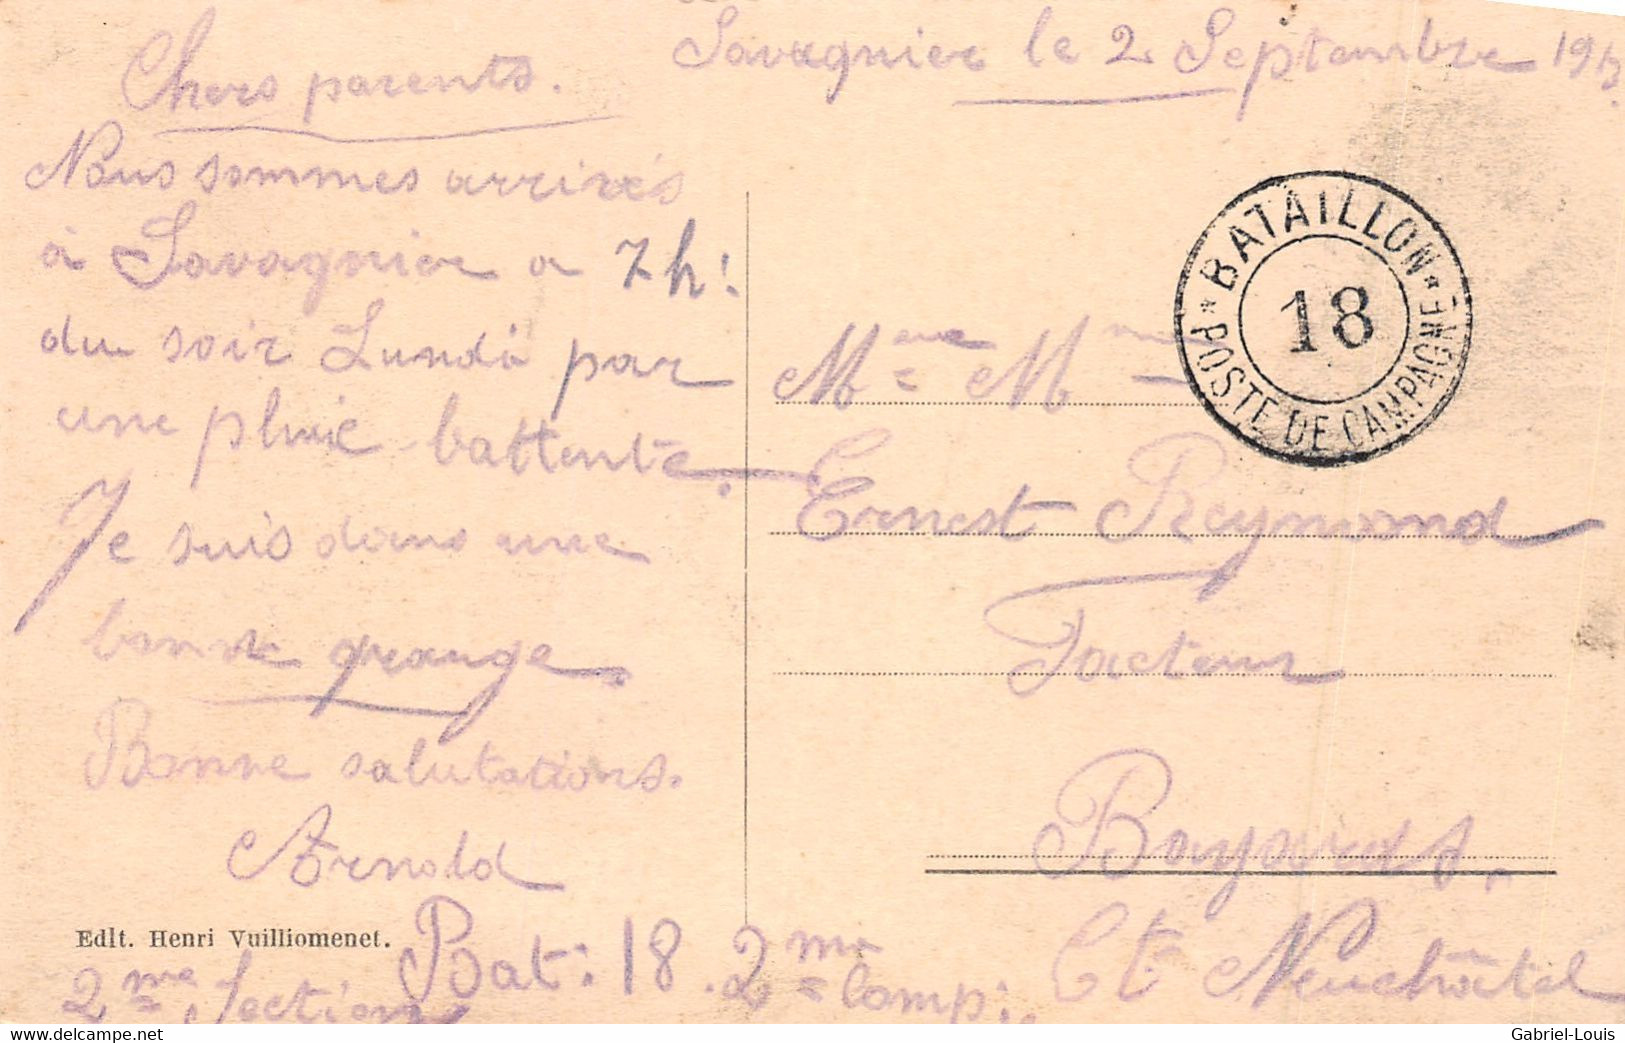 Savagnier le 2 Septembre 1913.
Chers parents.
Nous sommes arrivés
à Savagnier a 7h:
du soir Lundi par
une pluie battente.
Je suis dans une
bonne grange.
Bonne salutations.
Arnold
Bat: 18. 2me Comp:
2me Section
Edlt. Henri Vuilliomenet.
* BATAILLON *
18
POSTE DE CAMPAGNE
Mme
Ernest Reymond
Facteur
Bayards.
Ct Neuchâtel
www.delcampe.net
Gabriel-Louis